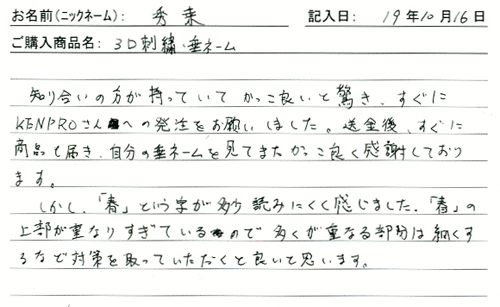 お名前(ニックネーム): 秀乗 記入日: 19年10月16日
ご購入商品名: 3D刺繍・垂ネーム
知り合いの方が持っていてかっこ良いと驚き、すぐに
KENPROさんへの発注をお願いしました。送金後、すぐに
商品も届き、自分の垂ネームを見てまたかっこ良く感謝しており
ます。
しかし、「春」という字が多少読みにくく感じました。「春」の
上部が重なりすぎているので多くが重なる部分は細くす
るなど対策を取っていただくと良いと思います。